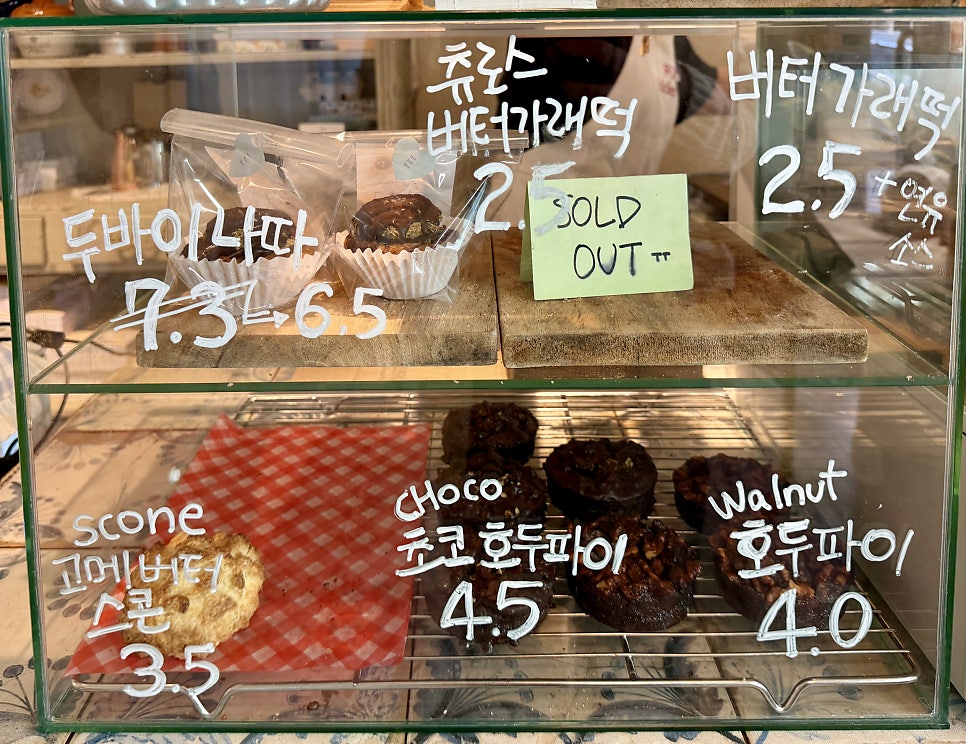 츄로스
버터가래떡
2.5
버터가래떡
2.5 +연유
소스
두바이나파
7.3 → 6.5
SOLD
OUT ㅠ
scone
고메버터
스콘
3.5
CHOCO
초코호두파이
4.5
walnut
호두파이
4.0